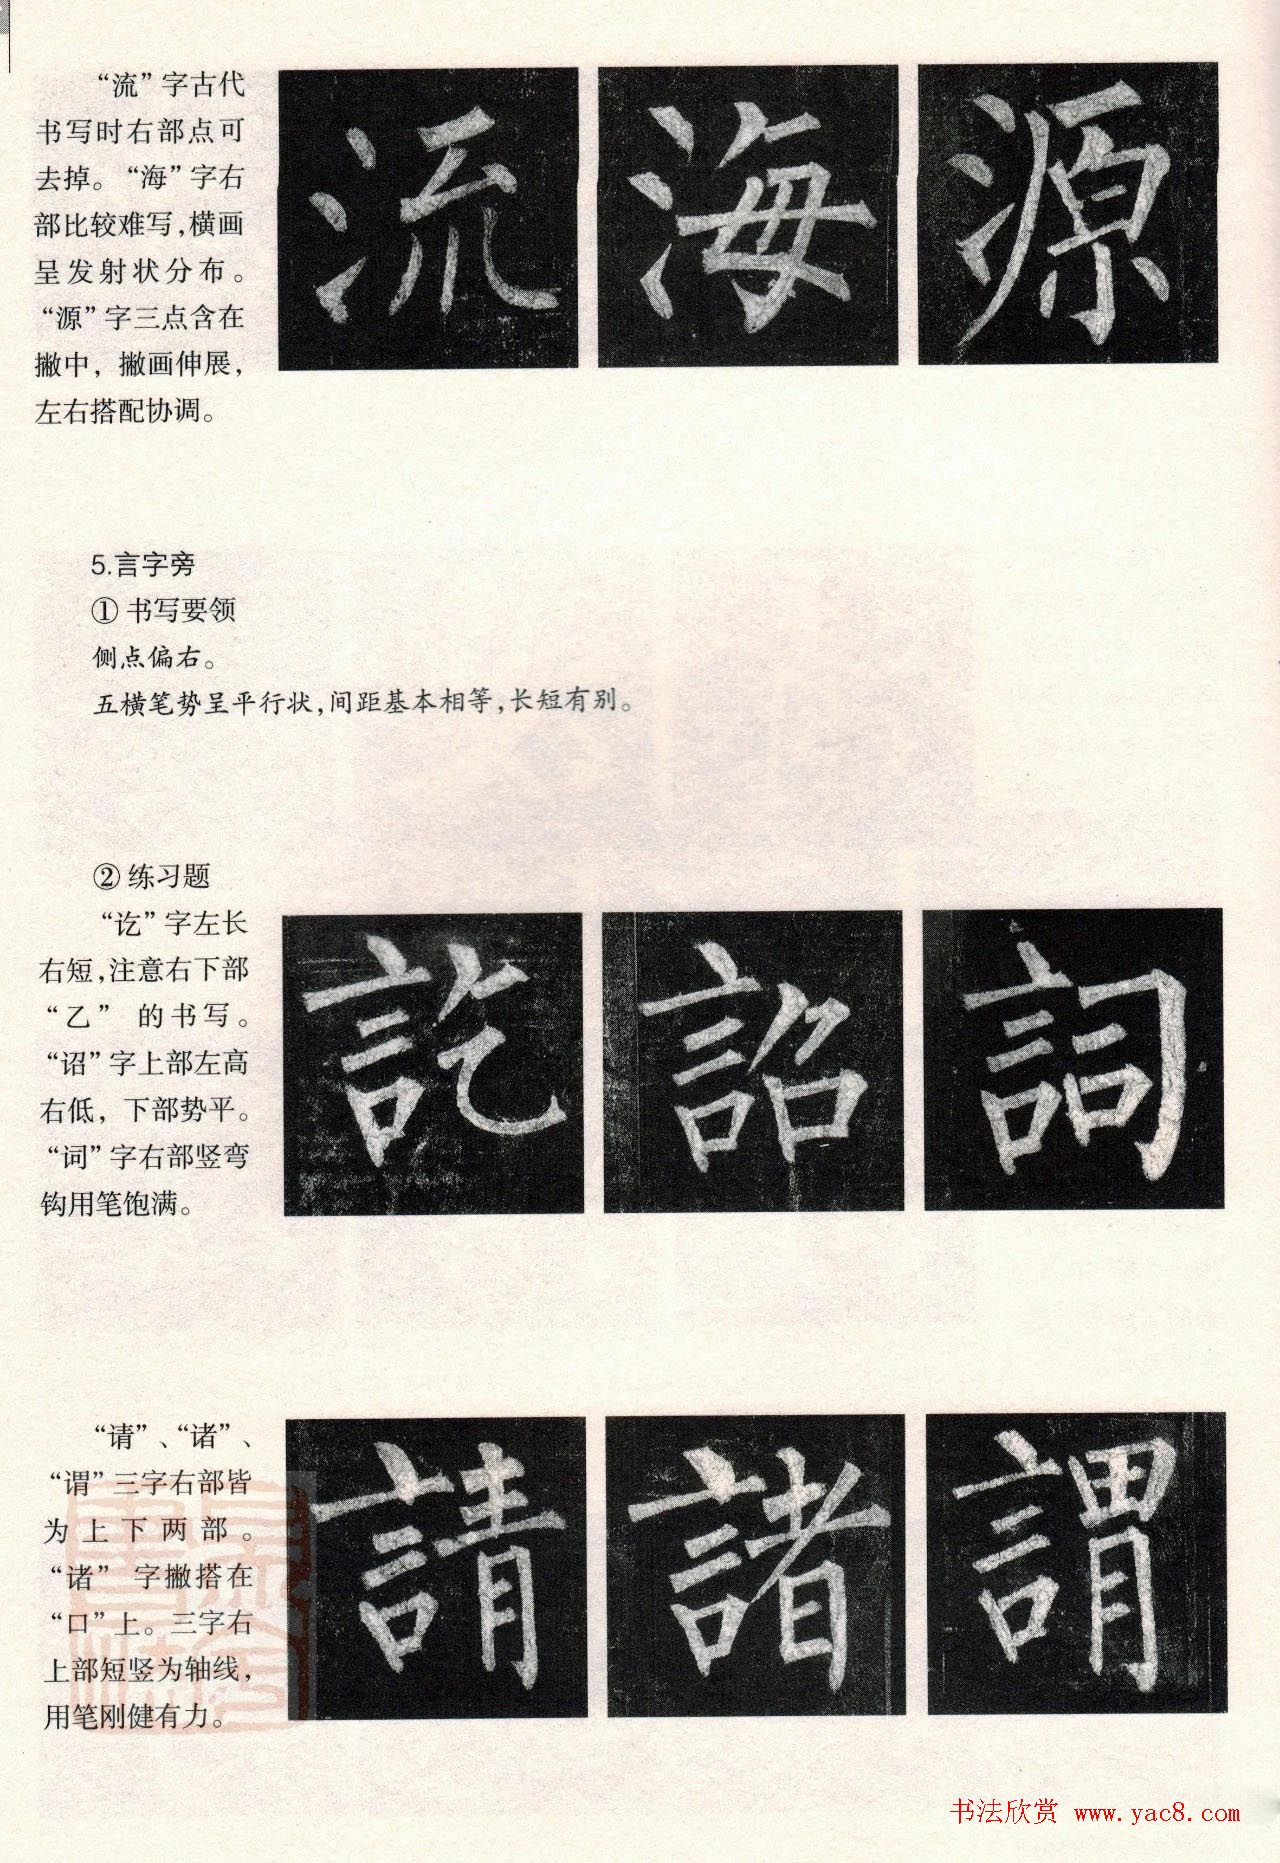 “流”字古代
书写时右部点可
去掉。“海”字右
部比较难写,横画
呈发射状分布。
“源”字三点含在
撇中，撇画伸展，
左右搭配协调。
流 海 源
5.言字旁
① 书写要领
侧点偏右。
五横笔势呈平行状,间距基本相等,长短有别。
② 练习题
“讫”字左长
右短,注意右下部
“乙” 的书写。
“诏”字上部左高
右低，下部势平。
“词”字右部竖弯
钩用笔饱满。
訖 詔 詞
“请”、“诸”、
“谓”三字右部皆
为上下两部。
“诸” 字撇搭在
“口”上。三字右
上部短竖为轴线，
用笔刚健有力。
請 諸 謂
书法欣赏 www.yac8.com